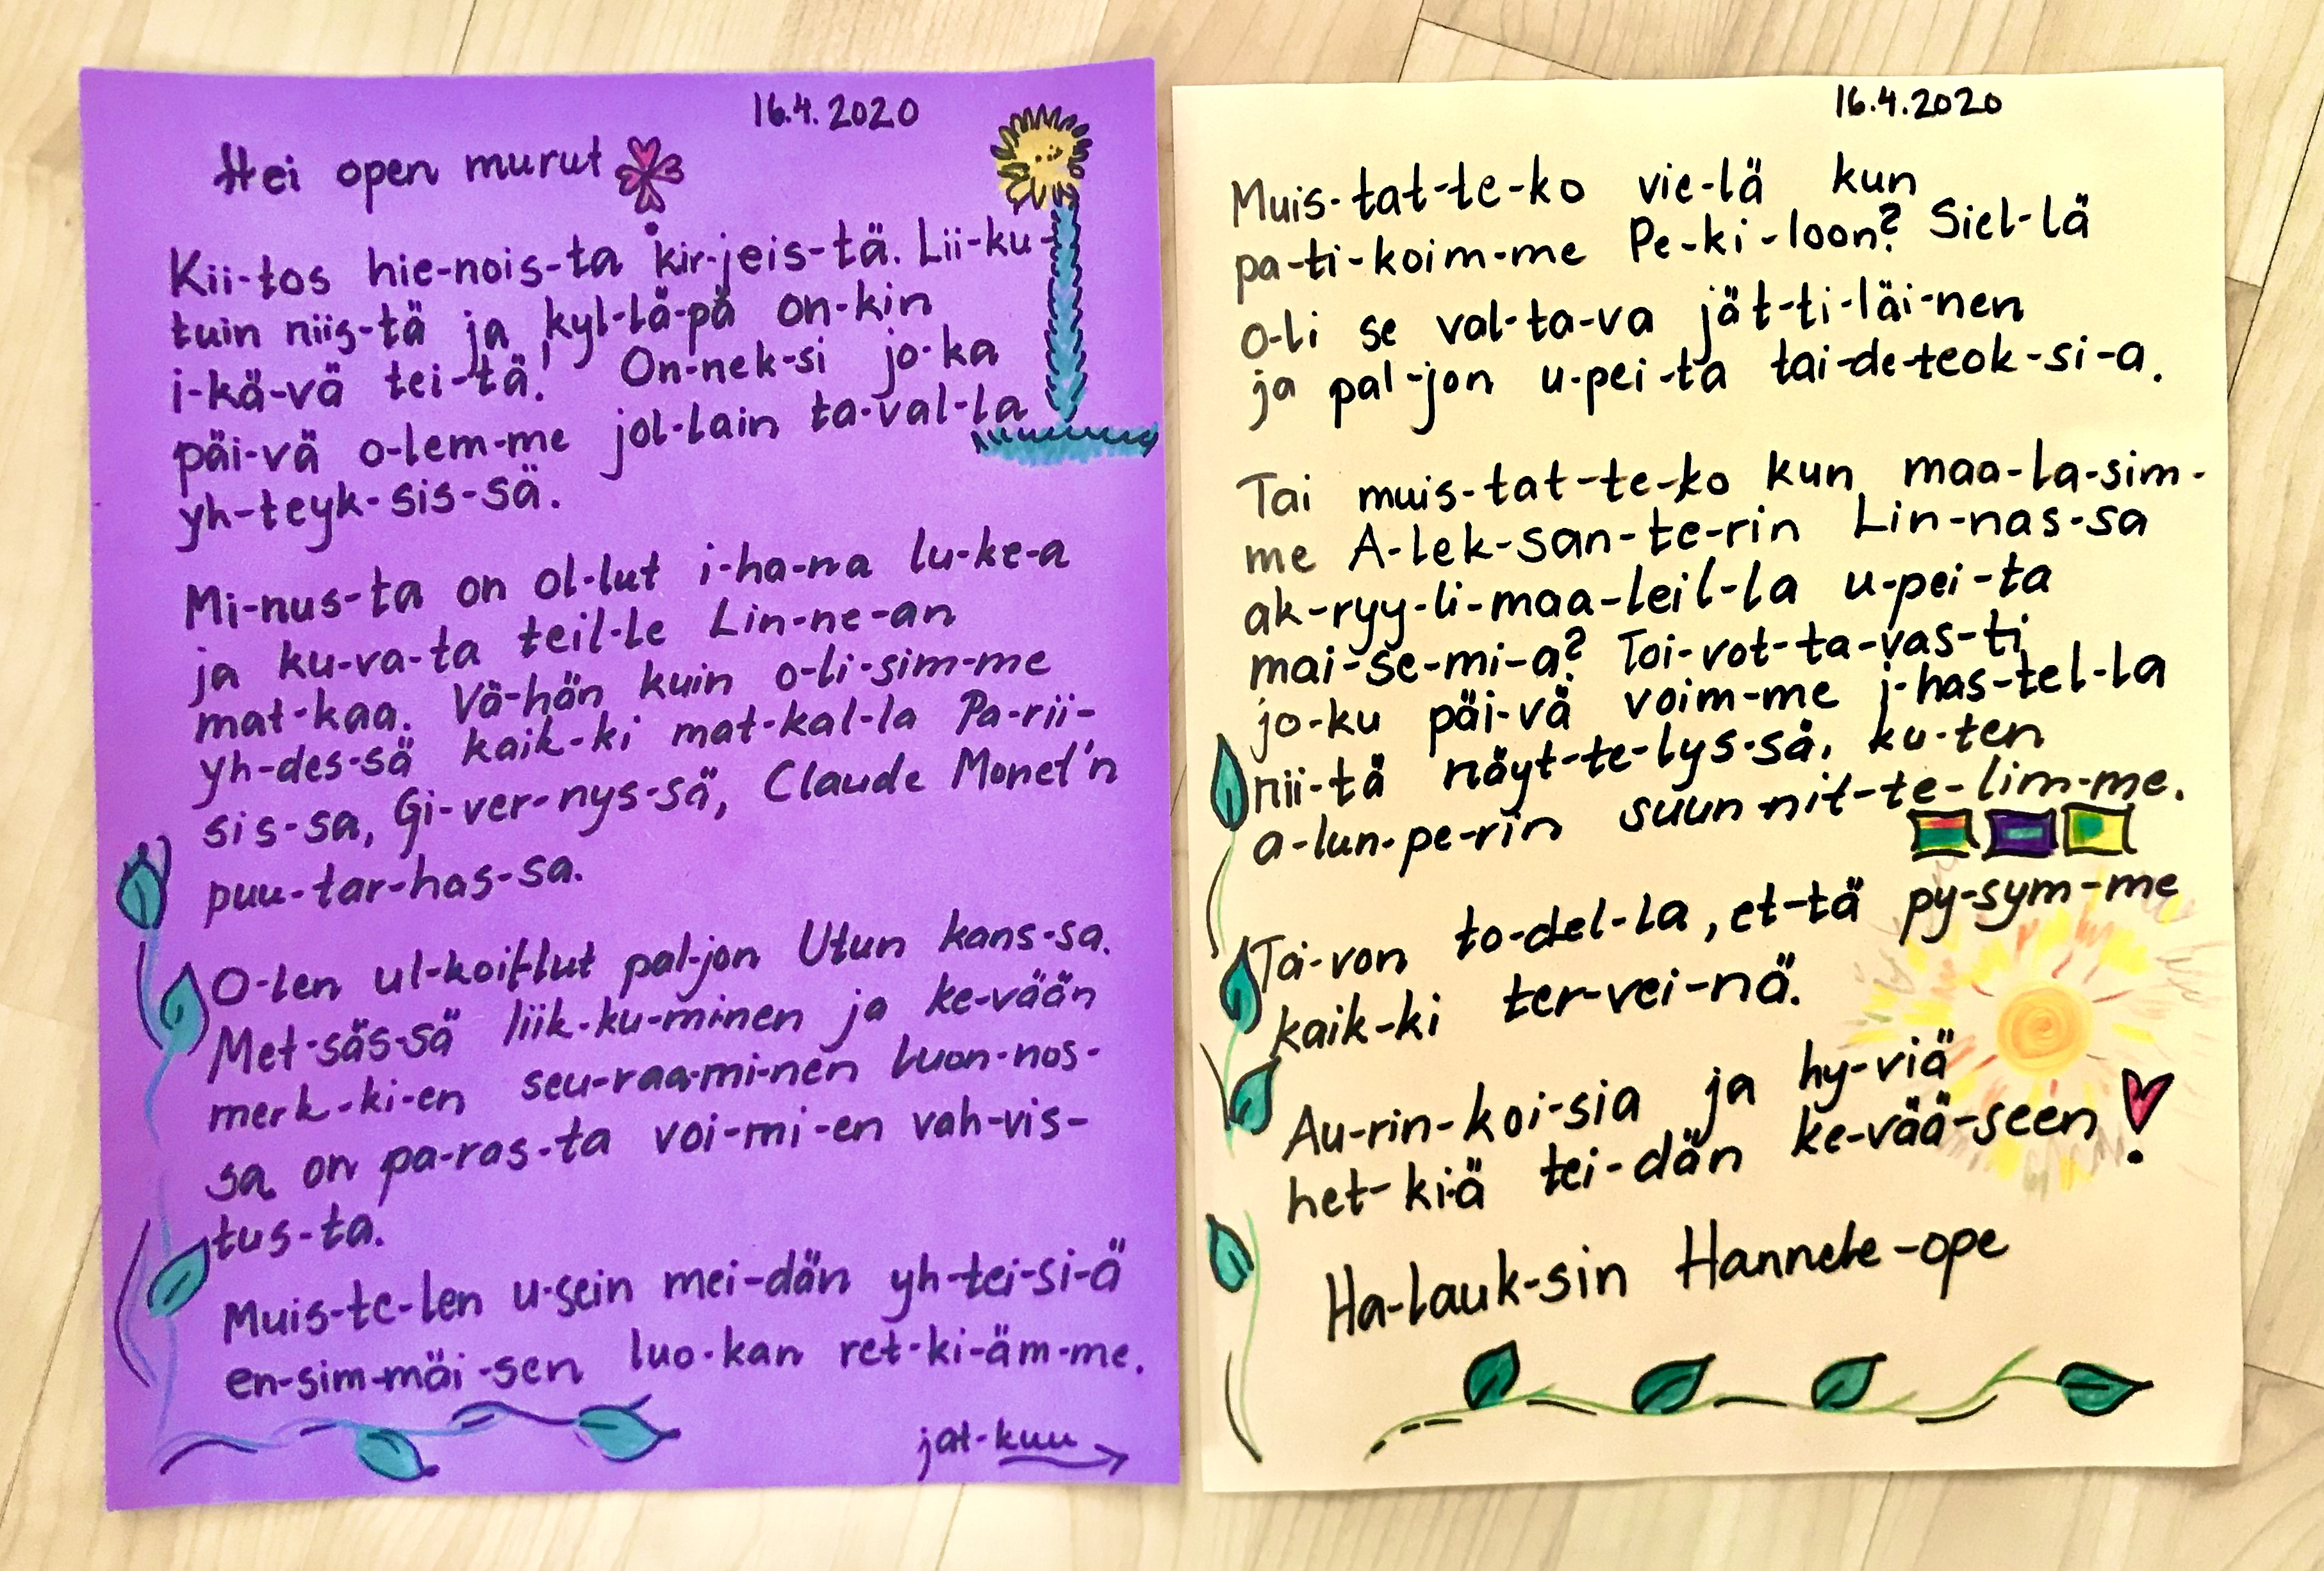 16.4.2020
Hei open murut
Kii-tos hie-nois-ta kir-jeis-tä. Lii-ku-
tuin niis-tä ja kyl-lä-pä on-kin
i-kä-vä tei-tä! On-nek-si jo-ka
päi-vä o-lem-me jol-lain ta-val-la
yh-teyk-sis-sä.
Mi-nus-ta on ol-lut i-ha-na lu-ke-a
ja ku-va-ta teil-le Lin-ne-an
mat-kaa. Vä-hän kuin o-li-sim-me
yh-des-sä kaik-ki mat-kal-la Pa-rii-
sis-sa, Gi-ver-nys-sä, Claude Monet'n
puu-tar-has-sa.
O-len ul-koil-lut pal-jon Utun kans-sa.
Met-säs-sä liik-ku-minen ja ke-vään
merk-ki-en seu-raa-mi-nen luon-nos-
sa on pa-ras-ta voi-mi-en vah-vis-
tus-ta.
Muis-te-len u-sein mei-dän yh-tei-si-ä
en-sim-mäi-sen luo-kan ret-ki-äm-me.
jat-kuu
16.4.2020
Muis-tat-te-ko vie-lä kun
pa-ti-koim-me Pe-ki-loon? Siel-lä
o-li se val-ta-va jät-ti-läi-nen
ja pal-jon u-pei-ta tai-de-teok-si-a.
Tai muis-tat-te-ko kun maa-la-sim-
me A-lek-san-te-rin Lin-nas-sa
ak-ryy-li-maa-leil-la u-pei-ta
mai-se-mi-a? Toi-vot-ta-vas-ti
jo-ku päi-vä voim-me i-has-tel-la
nii-tä näyt-te-lys-sä, ku-ten
a-lun-pe-rin suun-nit-te-lim-me.
Toi-von to-del-la, et-tä py-sym-me
kaik-ki ter-vei-nä.
Au-rin-koi-sia ja hy-viä
het-kiä tei-dän ke-vää-seen!
Ha-lauk-sin Hannele-ope